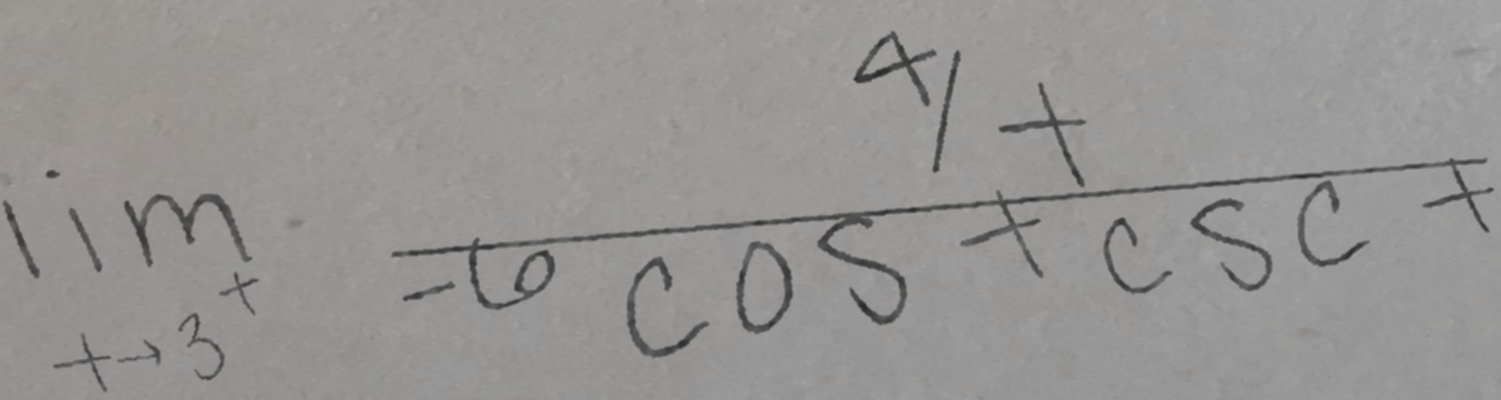 lim t→3⁺ (4/t) / (-6 cos t csc t)